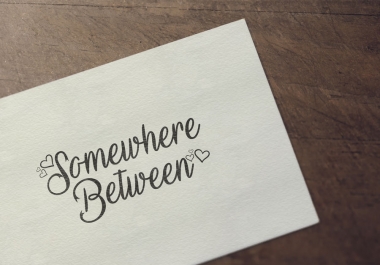 Somewhere
Between